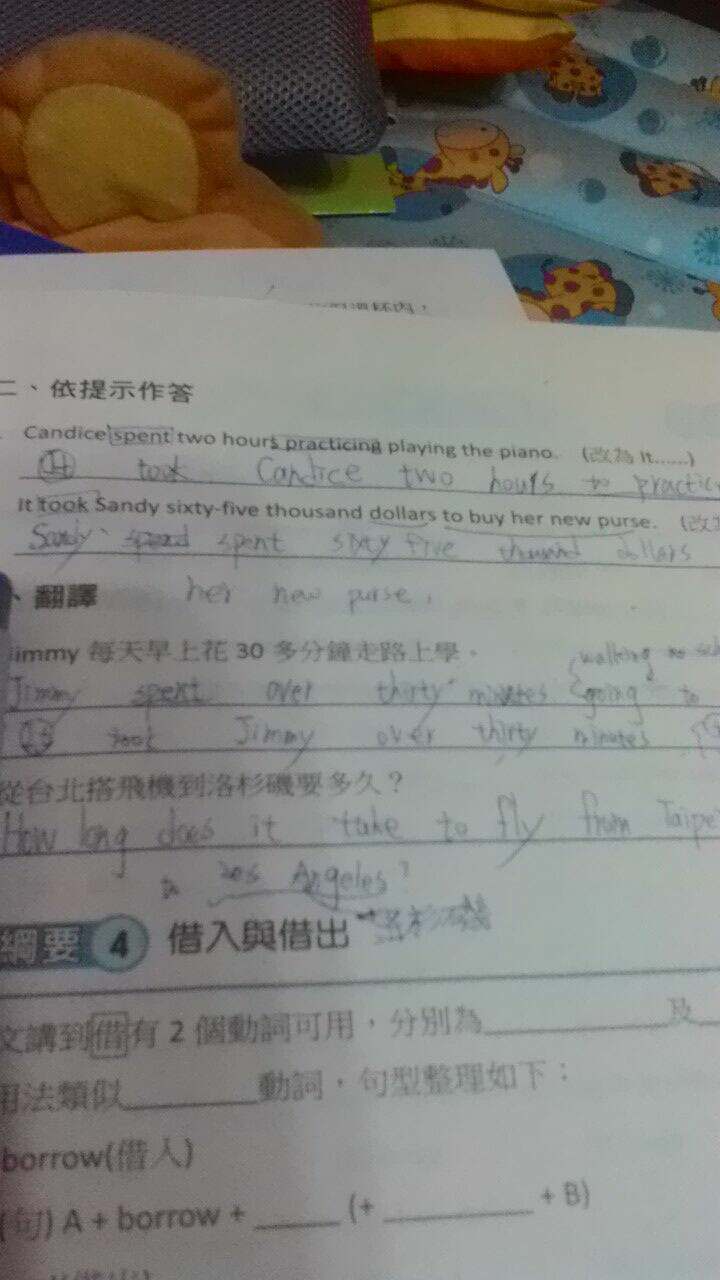 二、依提示作答
Candice spent two hours practicing playing the piano. (改為 It……)
It took Candice two hours to practic
It took Sandy sixty-five thousand dollars to buy her new purse. (改
Sandy spent sixty five thousand dollars
her new purse.
、翻譯
Jimmy 每天早上花 30 多分鐘走路上學。
walking to sch
Jimmy spent over thirty minutes going to
It took Jimmy over thirty minutes
從台北搭飛機到洛杉磯要多久？
How long does it take to fly from Taipei
to Los Angeles?
洛杉磯
綱要 4 借入與借出
文講到借有 2 個動詞可用，分別為__________及
用法類似________動詞，句型整理如下：
borrow(借入)
(句) A + borrow + _____ (+ _________ + B)